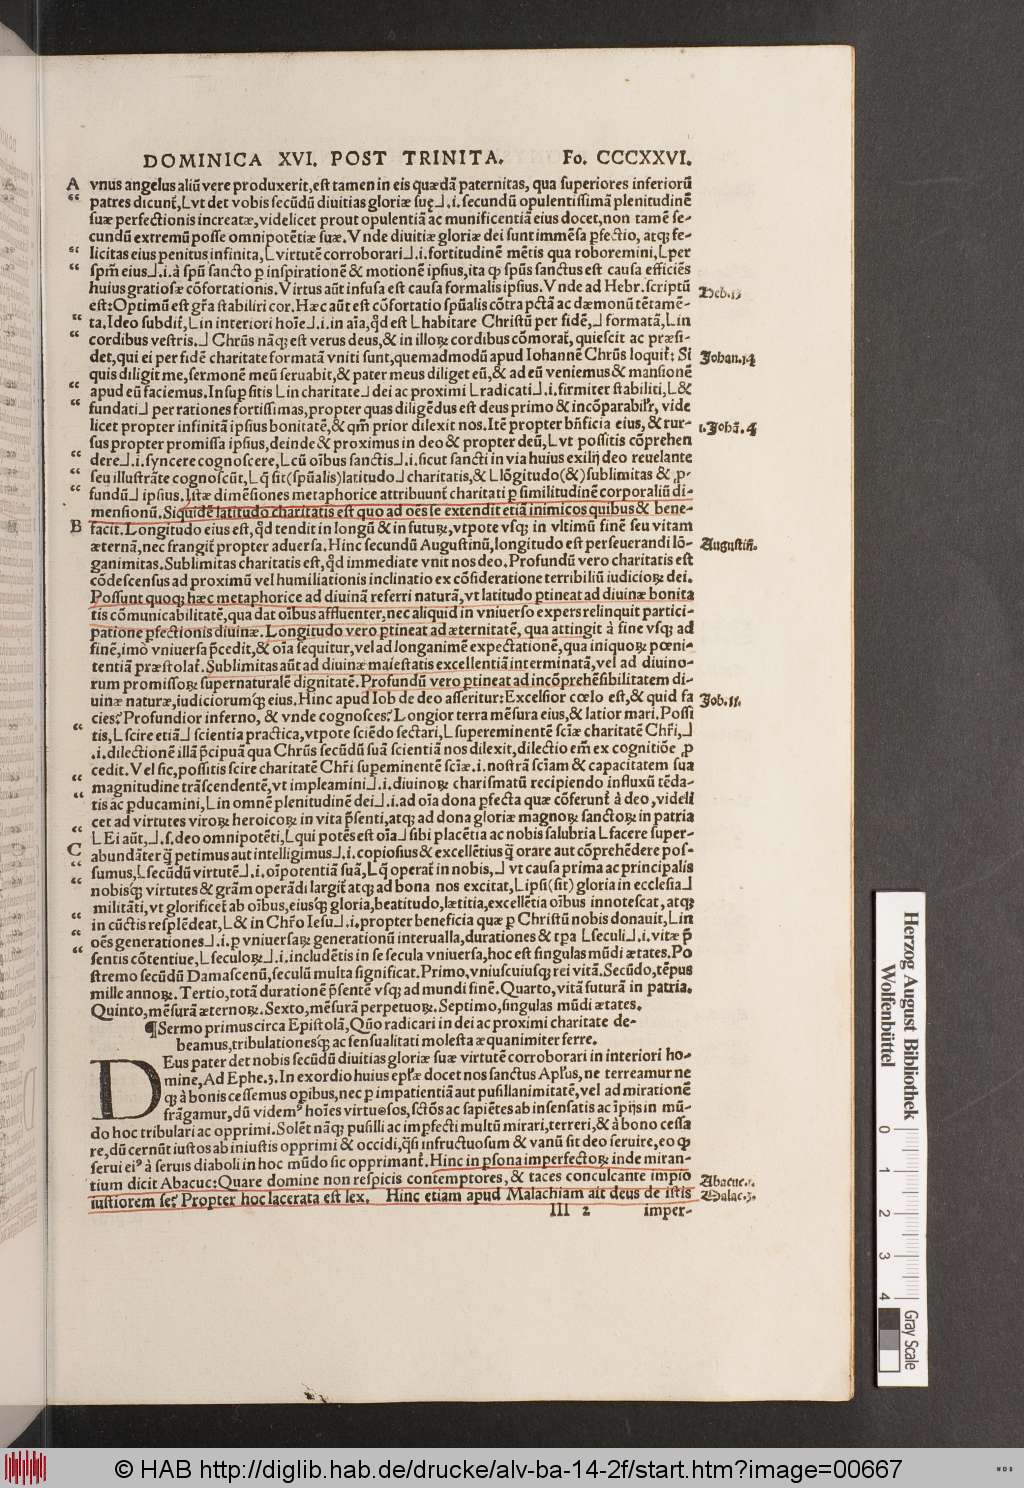 DOMINICA XVI. POST TRINITA. Fo. CCCXXVI.
A vnus angelus aliũ vere produxerit,est tamen in eis quædã paternitas, qua superiores inferiorũ
“ patres dicunt̃,Lvt det vobis secũdũ diuitias gloriæ suę⅃.i.secundũ opulentissimã plenitudinẽ
suæ perfectionis increatæ,videlicet prout opulentiã ac munificentiã eius docet,non tamẽ se-
cundũ extremũ posse omnipotẽtiæ suæ.Vnde diuitiæ gloriæ dei sunt immẽsa ꝑfectio, atqꝫ fe-
“ licitas eius penitus infinita,Lvirtutẽ corroborari⅃.i.fortitudinẽ mẽtis qua roboremini,Lper
“ spm̃ eius⅃.i.à spũ sancto ꝑ inspirationẽ & motionẽ ipsius,ita ꝙ spũs sanctus est causa efficiẽs
huius gratiosæ cõfortationis.Virtus aũt infusa est causa formalis ipsius.Vnde ad Hebr.scriptũ Heb.13
est:Optimũ est gr̃a stabiliri cor.Hæc aũt est cõfortatio spũalis cõtra pctã ac dæmonũ tẽtamẽ-
“ ta.Ideo subdit̃,Lin interiori hoĩe⅃.i.in aĩa,qd̃ est Lhabitare Christũ per fidẽ,⅃ formatã,Lin
“ cordibus vestris.⅃ Chr̃us nãqꝫ est verus deus,& in illoꝝ cordibus cõmorat̃, quiescit ac præsi-
det,qui ei per fidẽ charitate formatã vniti sunt,quemadmodũ apud Iohannẽ Chr̃us loquit̃: Si Johan.14
quis diligit me,sermonẽ meũ seruabit,& pater meus diliget eũ,& ad eũ veniemus & mansionẽ
“ apud eũ faciemus.Insup sitis Lin charitate⅃ dei ac proximi Lradicati⅃.i.firmiter stabiliti,L&
“ fundati⅃ per rationes fortissimas,propter quas diligẽdus est deus primo & incõparabilr̃, vide
licet propter infinitã ipsius bonitatẽ,& qm̃ prior dilexit nos.Itẽ propter bñficia eius, & rur- 1.Johã.4
sus propter promissa ipsius,deinde & proximus in deo & propter deũ,Lvt possitis cõprehen
“ dere⅃.i.syncere cognoscere,Lcũ oĩbus sanctis⅃.i.sicut sancti in via huius exilij deo reuelante
“ seu illustrãte cognoscũt,Lq̃ sit(spũalis)latitudo⅃ charitatis,& Llõgitudo(&)sublimitas & ꝓ-
“ fundũ⅃ ipsius.Istæ dimẽsiones metaphorice attribuunt̃ charitati ꝑ similitudinẽ corporaliũ di-
mensionũ.Siquidẽ latitudo charitatis est quo ad oẽs se extendit etiã inimicos quibus & bene-
B facit.Longitudo eius est,qd̃ tendit in longũ & in futuꝝ,vtpote vsqꝫ in vltimũ finẽ seu vitam
æternã,nec frangit̃ propter aduersa.Hinc secundũ Augustinũ,longitudo est perseuerandi lõ- Augustiñ.
ganimitas.Sublimitas charitatis est,qd̃ immediate vnit nos deo.Profundũ vero charitatis est
cõdescensus ad proximũ vel humiliationis inclinatio ex cõsideratione terribiliũ iudicioꝝ dei.
Possunt quoqꝫ hæc metaphorice ad diuinã referri naturã,vt latitudo ꝑtineat ad diuinæ bonita
tis cõmunicabilitatẽ,qua dat oĩbus affluenter,nec aliquid in vniuerso expers relinquit partici-
patione ꝑfectionis diuinæ.Longitudo vero ꝑtineat ad æternitatẽ, qua attingit à fine vsqꝫ ad
finẽ,imò vniuersa p̃cedit,& oĩa sequitur,vel ad longanimẽ expectationẽ,qua iniquoꝝ pœni-
tentiã præstolat̃.Sublimitas aũt ad diuinæ maiestatis excellentiã interminatã,vel ad diuino-
rum promissoꝝ supernaturalẽ dignitatẽ.Profundũ vero ꝑtineat ad incõprehẽsibilitatem di-
uinæ naturæ,iudiciorumqꝫ eius.Hinc apud Iob de deo asseritur:Excelsior cœlo est,& quid fa Job.11.
cies?Profundior inferno, & vnde cognosces?Longior terra mẽsura eius,& latior mari.Possi
“ tis,Lscire etiã⅃ scientia practica,vtpote sciẽdo sectari,Lsupereminentẽ sciæ charitatẽ Chr̃i,⅃
.i.dilectionẽ illã p̃cipuã qua Chr̃us secũdũ suã scientiã nos dilexit,dilectio em̃ ex cognitiõe ꝓ
cedit.Vel sic,possitis scire charitatẽ Chr̃i supeminentẽ sciæ.i.nostrã sciam & capacitatem sua
“ magnitudine trãscendentẽ,vt impleamini⅃.i.diuinoꝝ charismatũ recipiendo influxũ tẽda-
“ tis ac ꝑducamini,Lin omnẽ plenitudinẽ dei⅃.i.ad oĩa dona ꝑfecta quæ cõferunt̃ à deo,videli
cet ad virtutes viroꝝ heroicoꝝ in vita p̃senti,atqꝫ ad dona gloriæ magnoꝝ sanctoꝝ in patria
“ LEi aũt,⅃.s.deo omnipotẽti,Lqui potẽs est oĩa⅃ sibi placẽtia ac nobis salubria Lfacere super-
C abundãter q̃ petimus aut intelligimus⅃.i.copiosius & excellẽtius q̃ orare aut cõprehẽdere pos-
“ sumus,Lsecũdũ virtutẽ⅃.i.oĩpotentiã suã,Lq̃ operat̃ in nobis,⅃ vt causa prima ac principalis
“ nobisqꝫ virtutes & grãm operãdi largit̃ atqꝫ ad bona nos excitat,Lipsi(sit) gloria in ecclesia⅃
militãti,vt glorificet̃ ab oĩbus,eiusqꝫ gloria,beatitudo,lætitia,excellẽtia oĩbus innotescat,atqꝫ
“ in cũctis resplẽdeat,L& in Chr̃o Iesu⅃.i.propter beneficia quæ ꝑ Christũ nobis donauit,Lin
“ oẽs generationes⅃.i.ꝑ vniuersaꝝ generationũ interualla,durationes & tꝑa Lseculi⅃.i.vitæ p̃
“ sentis cõtentiue,Lseculoꝝ⅃.i.includẽtis in se secula vniuersa,hoc est singulas mũdi ætates.Po
stremo secũdũ Damascenũ,seculũ multa significat.Primo,vniuscuiusqꝫ rei vitã.Secũdo,tẽpus
mille annoꝝ.Tertio,totã durationẽ p̃sentẽ vsqꝫ ad mundi finẽ.Quarto,vitã futurã in patria.
Quinto,mẽsurã æternoꝝ.Sexto,mẽsurã perpetuoꝝ.Septimo,singulas mũdi ætates.
¶Sermo primus circa Epistolã,Quõ radicari in dei ac proximi charitate de-
beamus,tribulationesqꝫ ac sensualitati molesta æquanimiter ferre.
DEus pater det nobis secũdũ diuitias gloriæ suæ virtutẽ corroborari in interiori ho-
mine,Ad Ephe.3.In exordio huius epl̃æ docet nos sanctus Apl̃us,ne terreamur ne
qꝫ à bonis cessemus oꝑibus,nec ꝑ impatientiã aut pusillanimitatẽ,vel ad mirationẽ
frãgamur,dũ videmꝰ hoĩes virtuosos,sctõs ac sapiẽtes ab insensatis ac ĩpijs in mũ-
do hoc tribulari ac opprimi.Solẽt nãqꝫ pusilli ac impfecti multũ mirari,terreri,& à bono cessa
re,dũ cernũt iustos ab iniustis opprimi & occidi,q̃si infructuosum & vanũ sit deo seruire,eo ꝙ
serui eiꝰ à seruis diaboli in hoc mũdo sic opprimant̃.Hinc in ꝑsona imperfectoꝝ inde miran-
tium dicit Abacuc:Quare domine non respicis contemptores, & taces conculcante impio Abacuc.1.
iustiorem se? Propter hoc lacerata est lex. Hinc etiam apud Malachiam ait deus de istis Malac.3.
III 2 imper-
Herzog August Bibliothek
Wolfenbüttel
0 1 2 3 4
Gray Scale
© HAB http://diglib.hab.de/drucke/alv-ba-14-2f/start.htm?image=00667